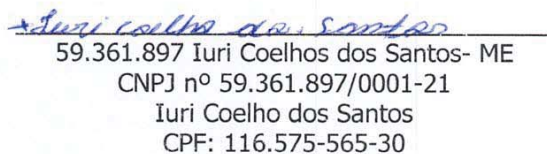 Iuri Coelho dos Santos
59.361.897 Iuri Coelhos dos Santos- ME
CNPJ nº 59.361.897/0001-21
Iuri Coelho dos Santos
CPF: 116.575-565-30